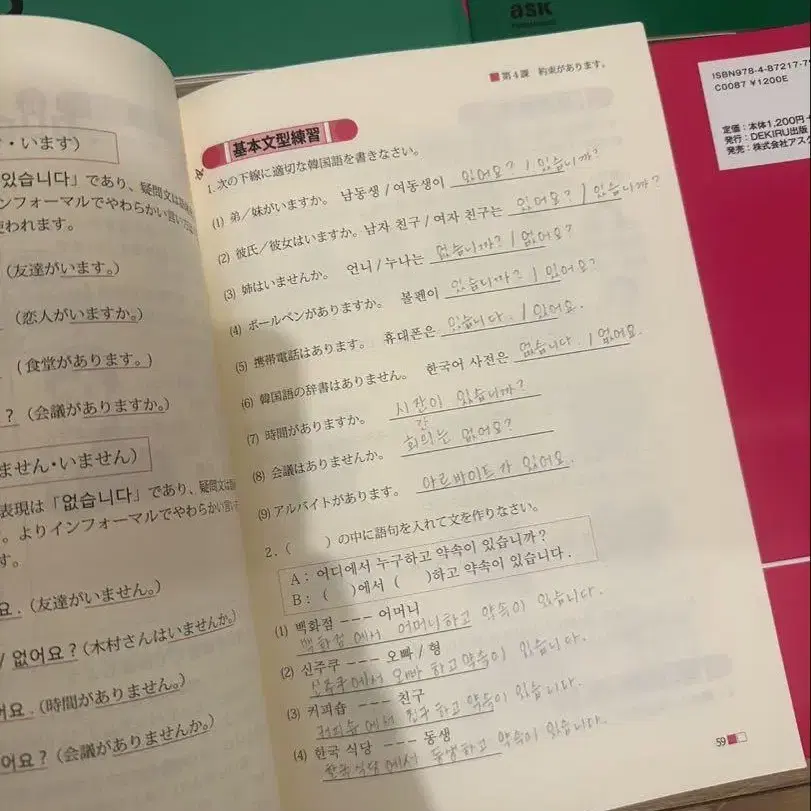 ask
ISBN978-4-87217-79
C0087 ¥1200E
定価：本体1,200円+
発行：DEKIRU出版
発売：株式会社アスク
・います）
있습니다」であり、疑問文は
ンフォーマルでやわらかい言い方
使われます。
（友達がいます。）
（恋人がいますか。）
（食堂があります。）
?（会議がありますか。）
ません・いません）
表現は「없습니다」であり、疑問文は
。よりインフォーマルでやわらかい言い
す。
요.（友達がいません。）
/ 없어요?（木村さんはいませんか。）
어요.（時間がありません。）
어요?（会議がありませんか。）
第4課 約束があります。
基本文型練習
1. 次の下線に適切な韓国語を書きなさい。
(1) 弟／妹がいますか。 남동생 / 여동생이 있어요? / 있습니까?
(2) 彼氏／彼女はいますか。 남자 친구 / 여자 친구는 있어요? / 있습니까?
(3) 姉はいませんか。 언니 / 누나는 없습니까? / 없어요?
(4) ボールペンがありますか。 볼펜이 있습니까? / 있어요?
(5) 携帯電話はあります。 휴대폰은 있습니다. / 있어요.
(6) 韓国語の辞書はありません。 한국어 사전은 없습니다. / 없어요.
(7) 時間がありますか。 시간이 있습니까?
간
(8) 会議はありませんか。 회의는 없어요?
(9) アルバイトがあります。 아르바이트가 있어요.
2.（ ）の中に語句を入れて文を作りなさい。
A : 어디에서 누구하고 약속이 있습니까?
B : ( )에서 ( )하고 약속이 있습니다.
(1) 백화점 --- 어머니
백화점에서 어머니하고 약속이 있습니다.
(2) 신주쿠 --- 오빠 / 형
신주쿠에서 오빠하고 약속이 있습니다.
(3) 커피숍 --- 친구
커피숍에서 친구하고 약속이 있습니다.
(4) 한국 식당 --- 동생
한국식당에서 동생하고 약속이 있습니다.
59